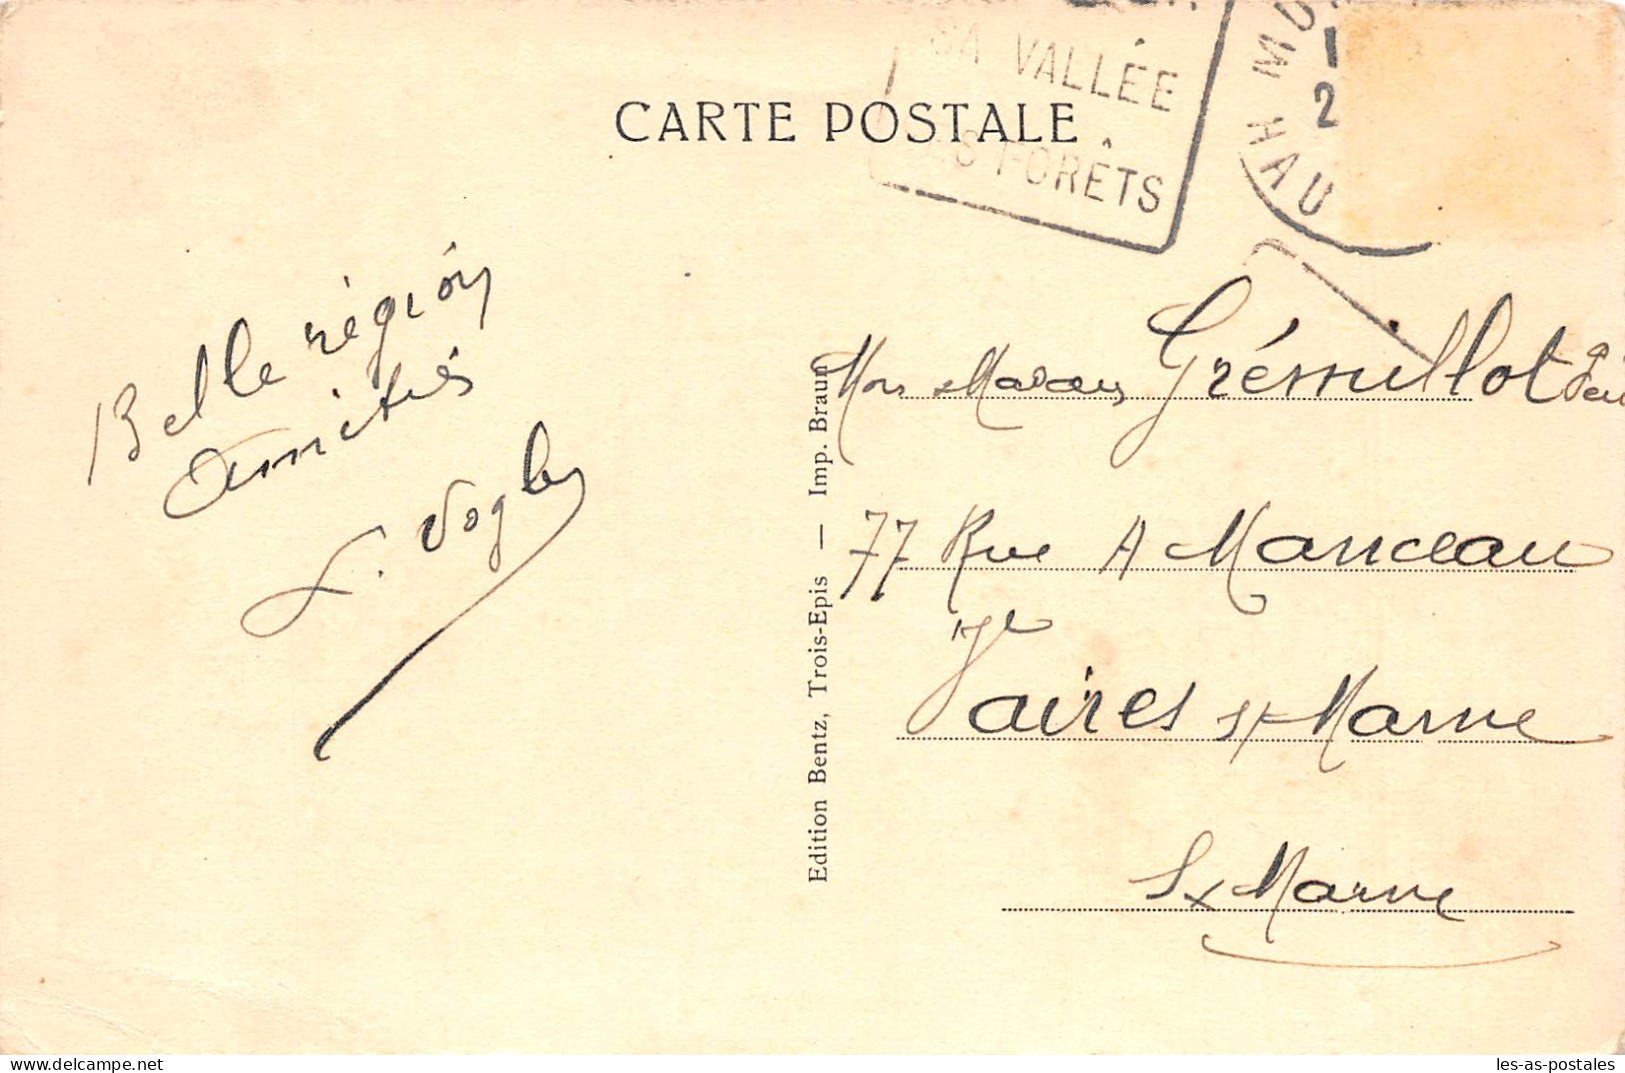 SA VALLÉE
FORÊTS
MU
1
2
HAU
CARTE POSTALE
Belle région
Amitiés
Edition Bentz, Trois-Epis — Imp. Braun
Grémillot
77 Rue A Manceau
Vaires s/ Marne
S x Marne
delcampe.net
les-as-postales